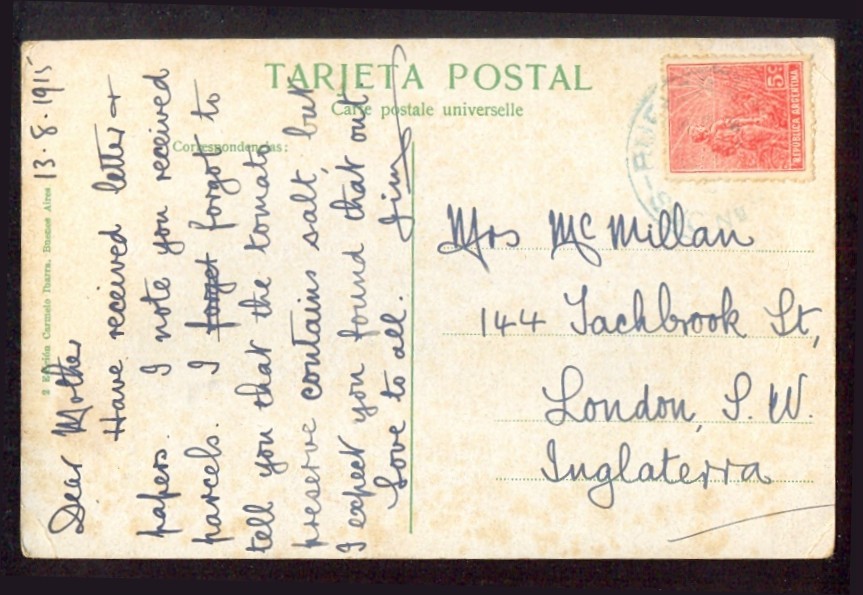 TARJETA POSTAL
Carte postale universelle
Correspondencias:
2 Edición Carmelo Ibarra. Buenos Aires
13.8.1915
Dear Mother
Have received letter +
papers. I note you received
parcels. I forget forgot to
tell you that the tomato
preserve contains salt, but
I expect you found that out.
Love to all. Jim
5c
REPUBLICA ARGENTINA
Mrs McMillan
144 Tachbrook St,
London, S. W.
Inglaterra